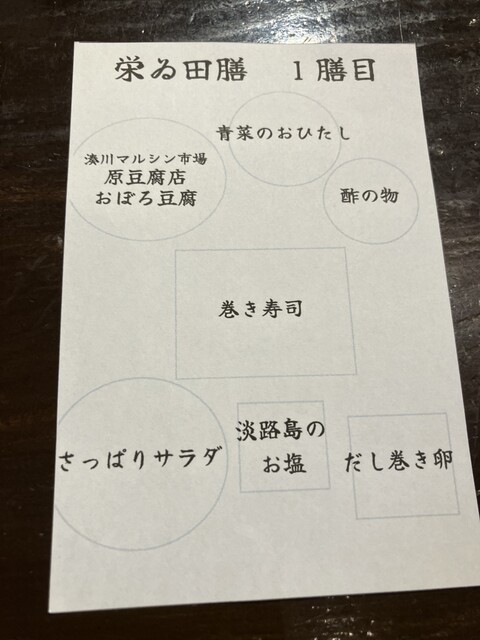 栄ゐ田膳　1膳目
青菜のおひたし
湊川マルシン市場
原豆腐店
おぼろ豆腐
酢の物
巻き寿司
さっぱりサラダ
淡路島の
お塩
だし巻き卵